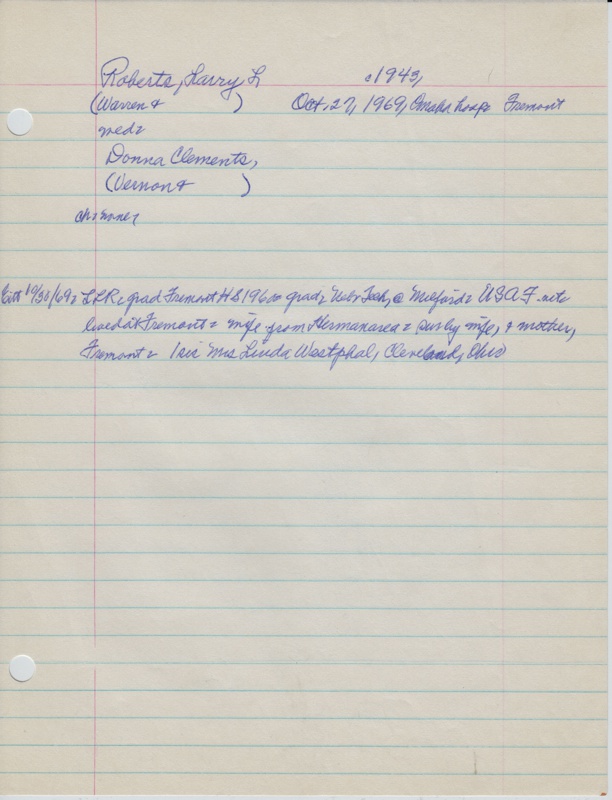 Roberts, Larry L c1943,
(Warren & ) Oct. 27, 1969, Omaha hosp Fremont
wed=
Donna Clements,
(Vernon & )
ch: none
Citt 10/30/69= LLR, grad Fremont HS 1960= grad, Nebr Tech, @ Milford= USAF vet=
lived at Fremont= wife from Herman area= Sur by wife, & mother,
Fremont= 1 sis Mrs Linda Westphal, Cleveland, Ohio